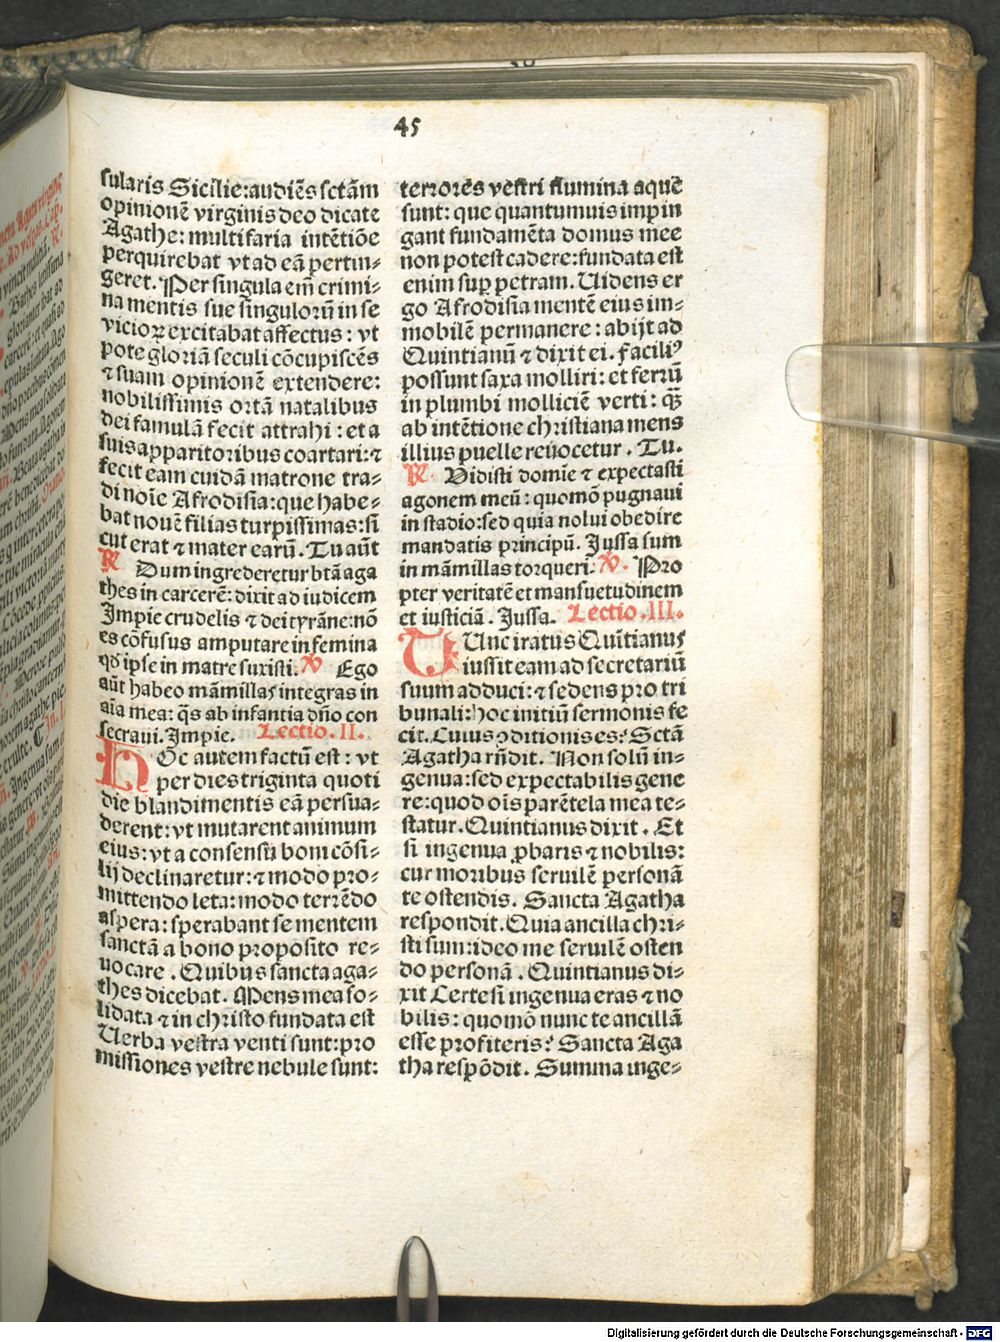 45
sularis Sicilie:audiēs sctām
opinionē virginis deo dicate
Agathe: multifaria intētiōe
perquirebat vt ad eā pertin-
geret. Per singula em̄ crimi-
na mentis sue singulorū in se
vicioꝝ excitabat affectus: vt
pote gloriā seculi cōcupiscēs
⁊ suam opinionē extendere:
nobilissimis ortā natalibus
dei famulā fecit attrahi: et a
suis apparitoribus coartari:⁊
fecit eam cuidā matrone tra-
di noīe Afrodisia: que habe-
bat nouē filias turpissimas: si
cut erat ⁊ mater earū. Tu aūt
℟ Dum ingrederetur btā aga
thes in carcerē: dixit ad iudicem
Impie crudelis ⁊ dei tyrāne: nō
es cōfusus amputare in femina
qđ ipse in matre suxisti. ℣ Ego
aūt habeo māmillas integras in
aīa mea: q̄s ab infantia dño con
secraui. Impie. Lectio.II.
HOc autem factū est: vt
per dies triginta quoti
die blandimentis eā persua-
derent: vt mutarent animum
eius: vt a consensu boni cōsi-
lij declinaretur: ⁊ modo pro-
mittendo leta: modo terrēdo
aspera: sperabant se mentem
sanctā a bono proposito re-
uocare. Quibus sancta aga-
thes dicebat. Mens mea so-
lidata ⁊ in christo fundata est
Uerba vestra venti sunt: pro
missiones vestre nebule sunt:
terrores vestri flumina aquē
sunt: que quantumuis impin
gant fundamēta domus mee
non potest cadere: fundata est
enim sup̲ petram. Uidens er
go Afrodisia mentē eius im-
mobilē permanere: abijt ad
Quintianū ⁊ dixit ei. faciliꝰ
possunt saxa molliri: et ferrū
in plumbi molliciē verti: q̄ꝫ
ab intētione christiana mens
illius puelle reuocetur. Tu.
℟ Vidisti domīe ⁊ expectasti
agonem meū: quomō pugnaui
in stadio: sed quia nolui obedire
mandatis principū. Jussa sum
in māmillas torqueri. ℣. Pro
pter veritatē et mansuetudinem
et iusticiā. Jussa. Lectio.III.
TUnc iratus Quītianus
iussit eam ad secretariū
suum adduci: ⁊ sedens pro tri
bunali: hoc initiū sermonis fe
cit. Cuius ꝯditionis es? Sctā
Agatha rn̄dit. Non solū in-
genua: sed expectabilis gene
re: quod oīs parētela mea te-
statur. Quintianus dixit. Et
si ingenua ꝓbaris ⁊ nobilis:
cur moribus seruilē personā
te ostendis. Sancta Agatha
respondit. Quia ancilla chri-
sti sum: ideo me seruilē osten
do personā. Quintianus di-
xit Certe si ingenua eras ⁊ no
bilis: quomō nunc te ancillā
esse profiteris? Sancta Aga
tha respōdit. Summa inge-
Digitalisierung gefördert durch die Deutsche Forschungsgemeinschaft - DFG